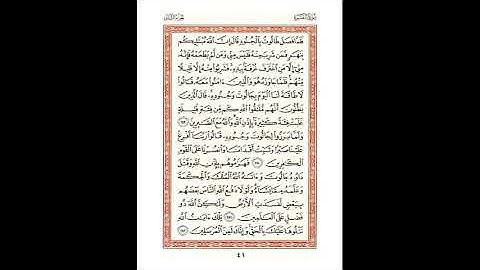 سورة البقرة الجزء الثاني
فلما فصل طالوت بالجنود قال إن الله مبتليكم
بنهر فمن شرب منه فليس مني ومن لم يطعمه فإنه
مني إلا من اغترف غرفة بيده فشربوا منه إلا قليلا
منهم فلما جاوزه هو والذين ءامنوا معه قالوا
لا طاقة لنا اليوم بجالوت وجنوده قال الذين
يظنون أنهم ملقوا الله كم من فئة قليلة
غلبت فئة كثيرة بإذن الله والله مع الصبرين ٢٤٩
ولما برزوا لجالوت وجنوده قالوا ربنا أفرغ
علينا صبرا وثبت أقدامنا وانصرنا على القوم
الكفرين ٢٥٠ فهزموهم بإذن الله وقتل
داود جالوت وءاتىه الله الملك والحكمة
وعلمه مما يشاء ولولا دفع الله الناس بعضهم
ببعض لفسدت الأرض ولكن الله ذو
فضل على العلمين ٢٥١ تلك ءايت الله
نتلوها عليك بالحق وإنك لمن المرسلين ٢٥٢
٤١